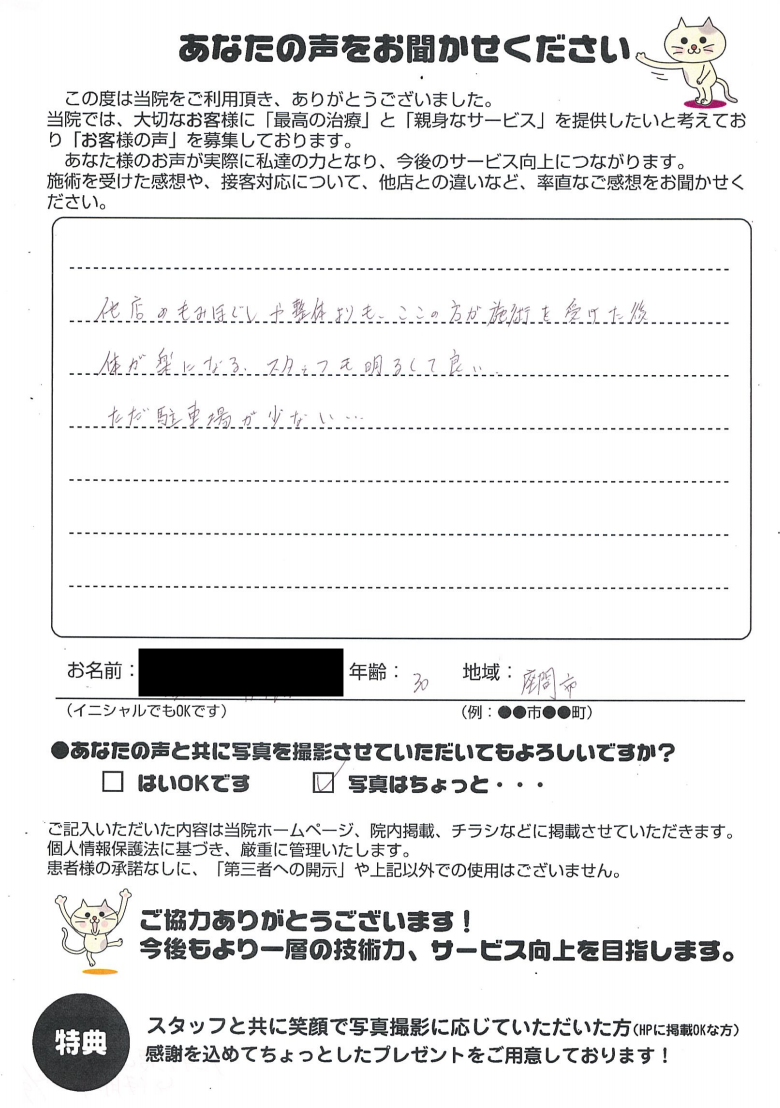 あなたの声をお聞かせください
この度は当院をご利用頂き、ありがとうございました。
当院では、大切なお客様に「最高の治療」と「親身なサービス」を提供したいと考えてお
り「お客様の声」を募集しております。
あなた様のお声が実際に私達の力となり、今後のサービス向上につながります。
施術を受けた感想や、接客対応について、他店との違いなど、率直なご感想をお聞かせく
ださい。
他店のもみほぐしや整体よりも、ここの方が施術を受けた後
体が楽になる。スタッフも明るくて良い。
ただ駐車場が少ない…
お名前: 年齢: 30 地域: 座間市
(イニシャルでもOKです) (例:●●市●●町)
●あなたの声と共に写真を撮影させていただいてもよろしいですか?
□ はいOKです ☑ 写真はちょっと・・・
ご記入いただいた内容は当院ホームページ、院内掲載、チラシなどに掲載させていただきます。
個人情報保護法に基づき、厳重に管理いたします。
患者様の承諾なしに、「第三者への開示」や上記以外での使用はございません。
ご協力ありがとうございます!
今後もより一層の技術力、サービス向上を目指します。
特典
スタッフと共に笑顔で写真撮影に応じていただいた方(HPに掲載OKな方)
感謝を込めてちょっとしたプレゼントをご用意しております!